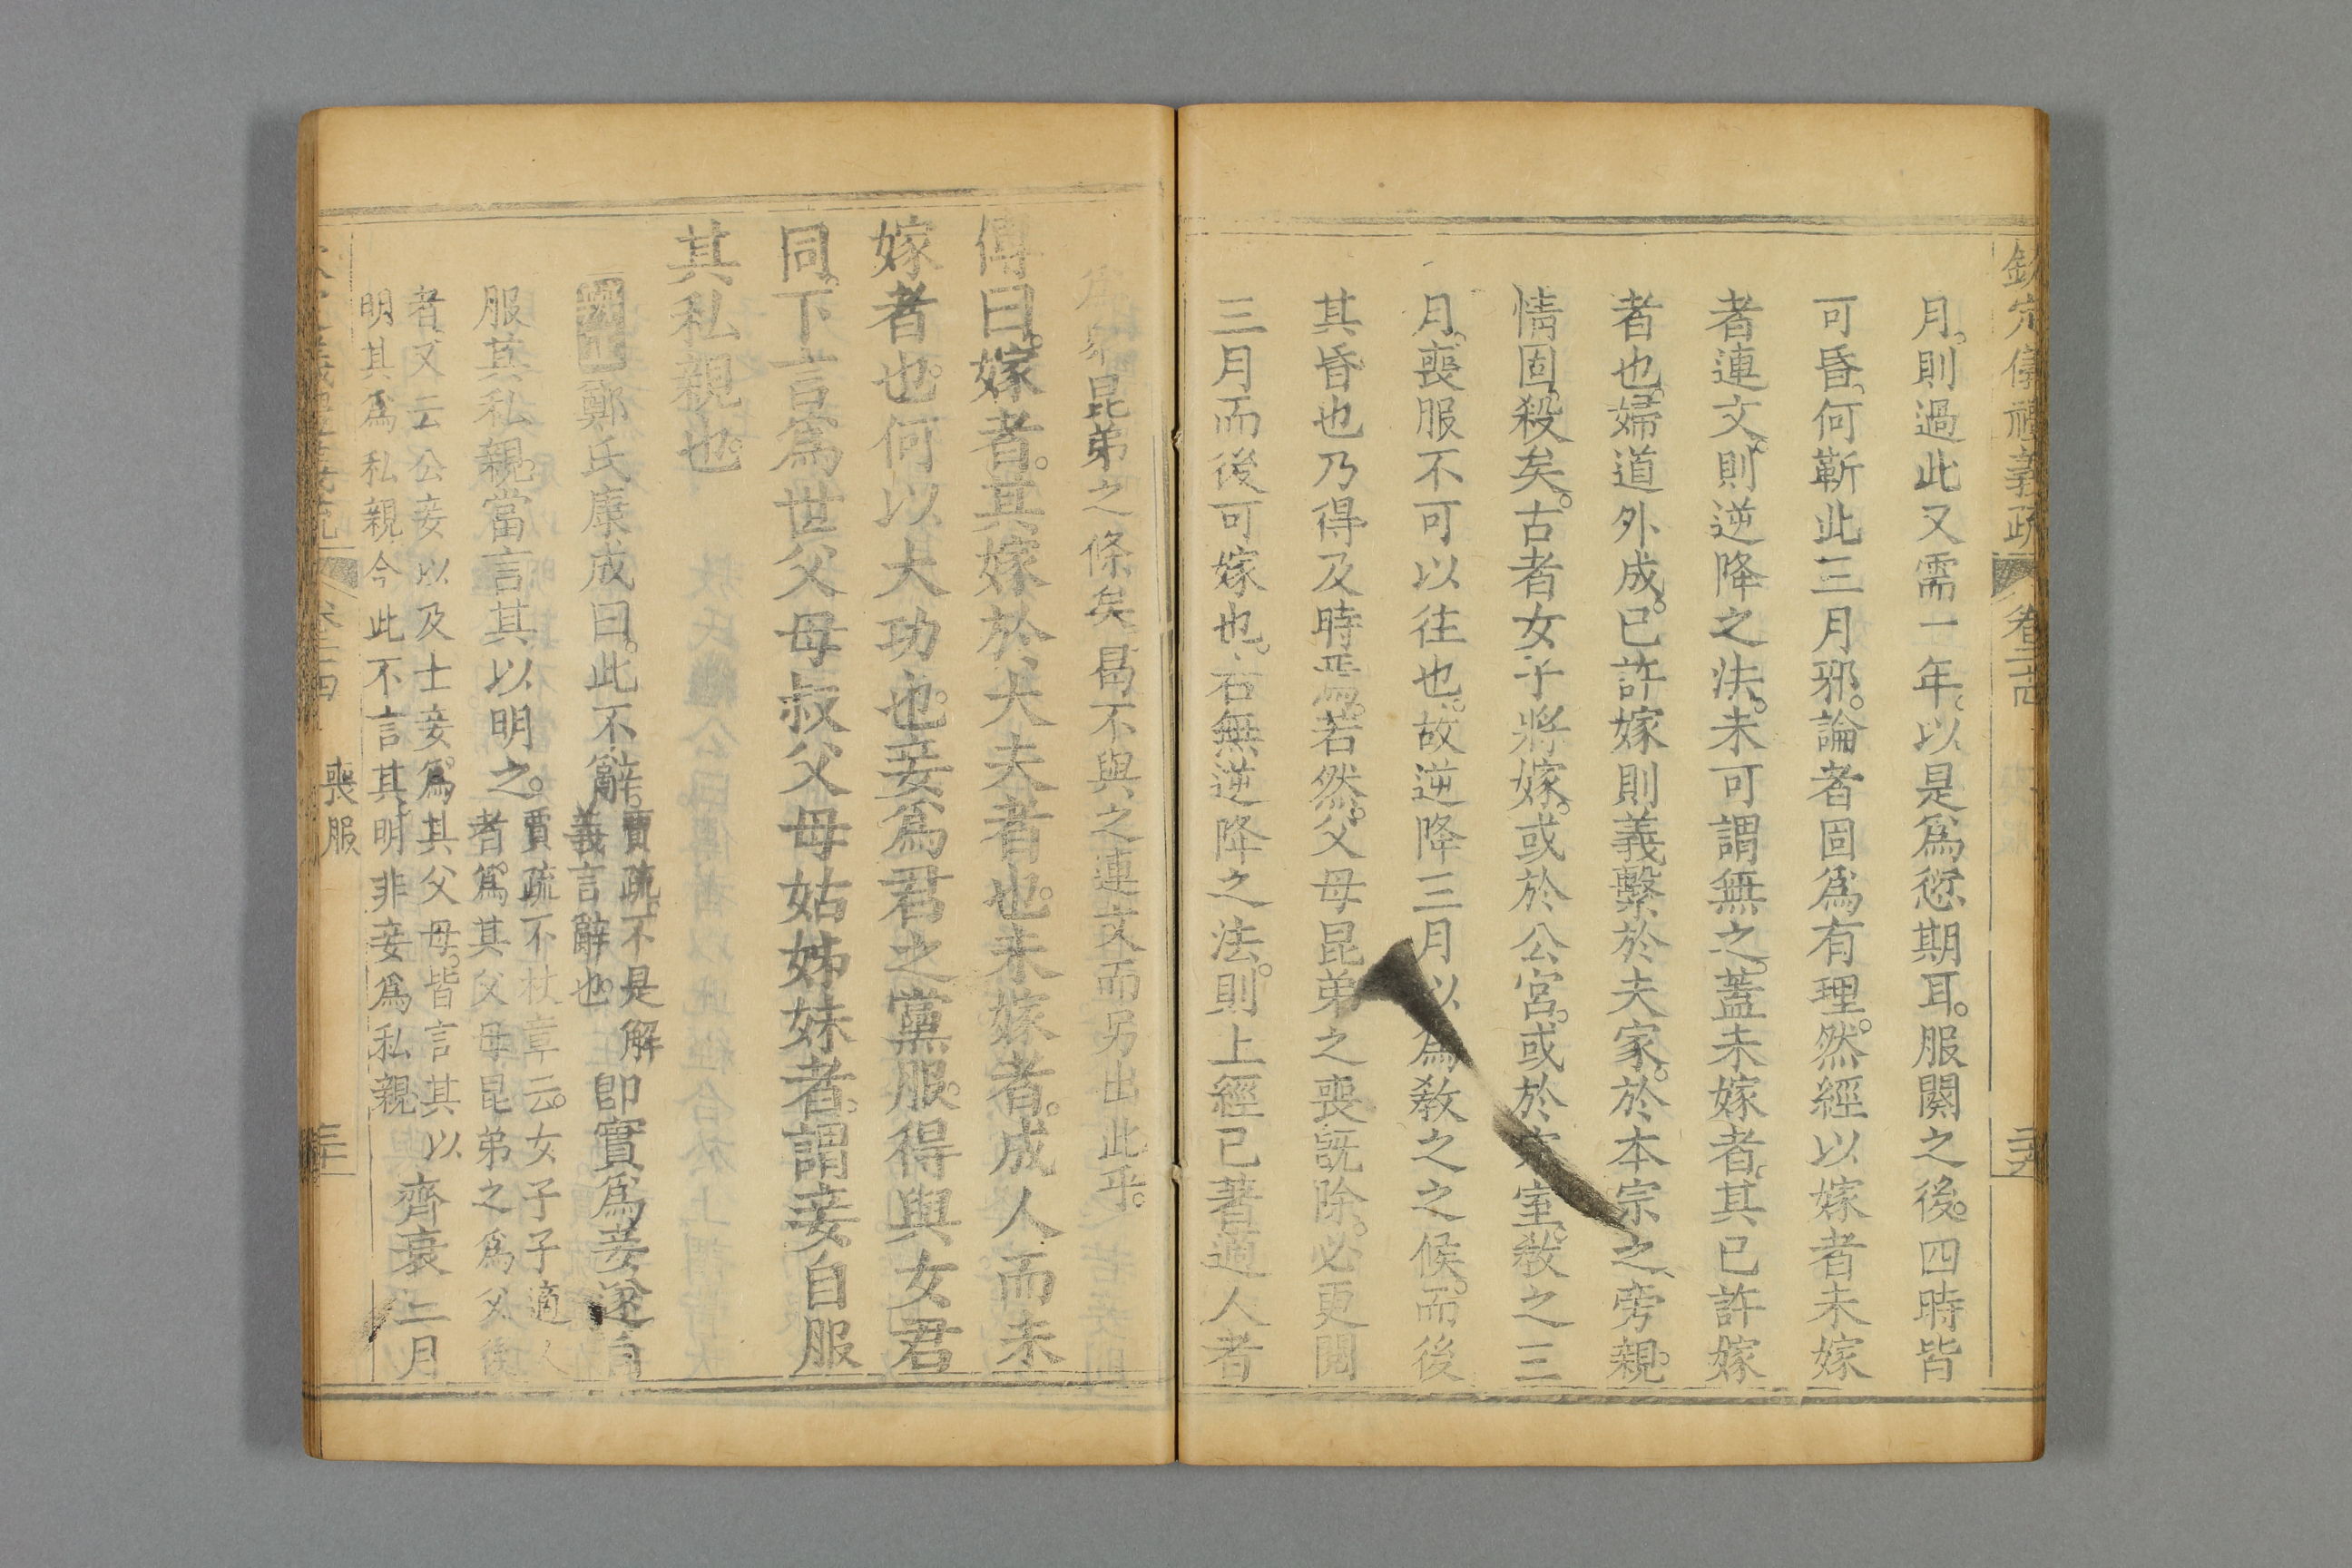 欽定儀禮義疏 卷二十四
月則過此又需一年以是爲愆期耳服闋之後四時皆
可昏何靳此三月邪論者固爲有理然經以嫁者未嫁
者連文則逆降之法未可謂無之蓋未嫁者其已許嫁
者也婦道外成已許嫁則義繫於夫家於本宗之旁親
情固殺矣古者女子將嫁或於公宮或於宗室敎之三
月喪服不可以往也故逆降三月以爲敎之之候而後
其昏也乃得及時焉若然父母昆弟之喪既除必更閱
三月而後可嫁也若無逆降之法則上經已著適人者
昆弟之條矣曷不與之連文而另出此乎
傳曰嫁者其嫁於大夫者也未嫁者成人而未
嫁者也何以大功也妾爲君之黨服得與女君
同下言爲世父母叔父母姑姊妹者謂妾自服
其私親也
鄭氏康成曰此不辭
賈疏不是解
義言辭也
即實爲妾遂自
服其私親當言其以明之
賈疏不杖章云女子子適人
者爲其父母昆弟之爲父後
者又云公妾以及士妾爲其父母皆言其以
明其爲私親今此不言其明非妾爲私親
齊衰三月
喪服